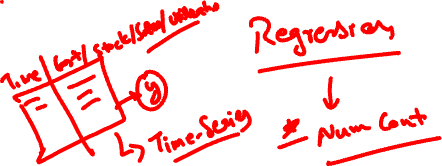 Time / Cost / Stock / Sales /
y
Time-Series
Regression
* Num Cont